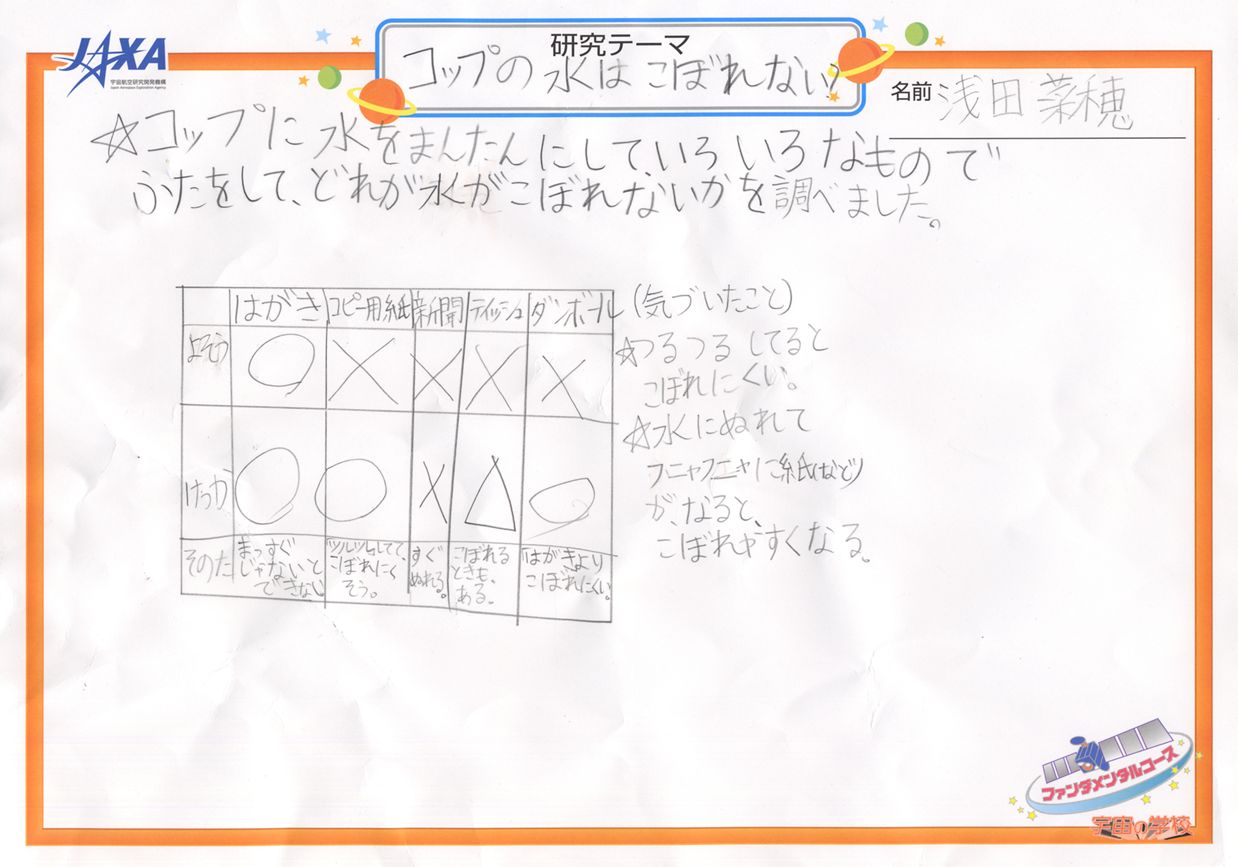 JAXA
宇宙航空研究開発機構
Japan Aerospace Exploration Agency
研究テーマ
コップの水はこぼれない?
名前 浅田菜穂
☆コップに水をまんたんにして、いろいろなもので
ふたをして、どれが水がこぼれないかを調べました。
はがき コピー用紙 新聞 ティッシュ ダンボール
よそう ○ × × × ×
けっか ○ ○ × △ ○
そのた
まっすぐ
じゃないと
できない
ツルツルしてて、
こぼれにく
そう。
すぐ
ぬれる。
こぼれる
ときも、
ある。
はがきより
こぼれにくい。
(気づいたこと)
☆つるつるしてると
こぼれにくい。
☆水にぬれて
フニャフニャに紙(など)
が、なると、
こぼれやすくなる。
ファンダメンタルコース
宇宙の学校